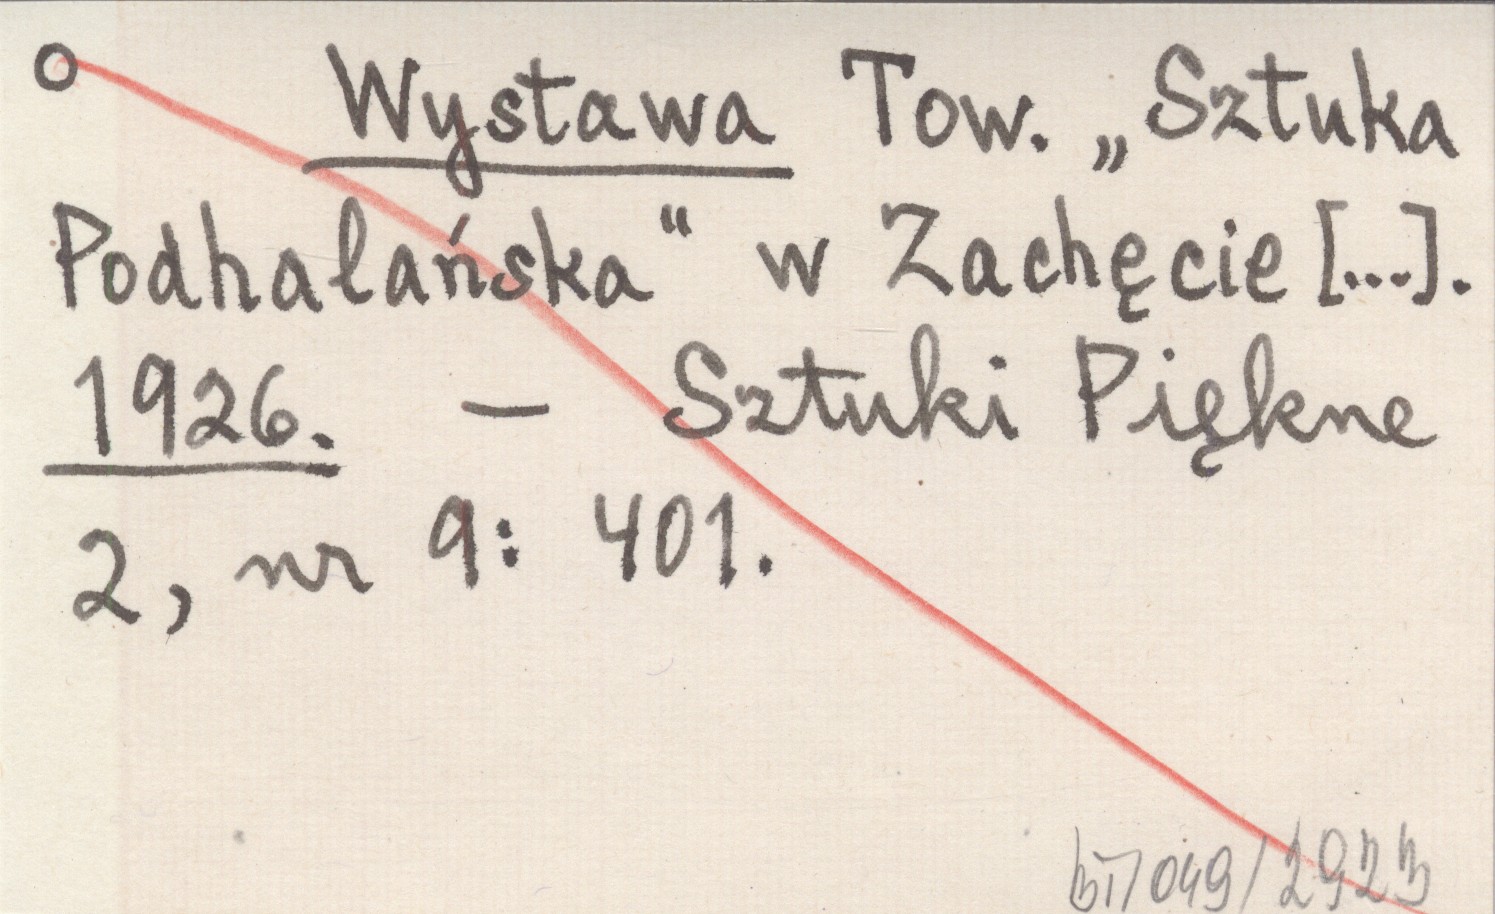 O Wystawa Tow. „Sztuka
Podhalańska“ w Zachęcie [...].
1926. — Sztuki Piękne
2, nr 9: 401.
bT/049/2923